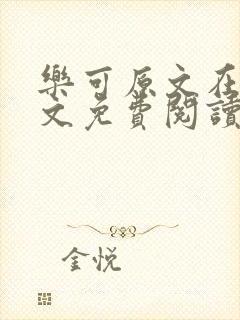 樂可原文在
文免費閱讀
金悅